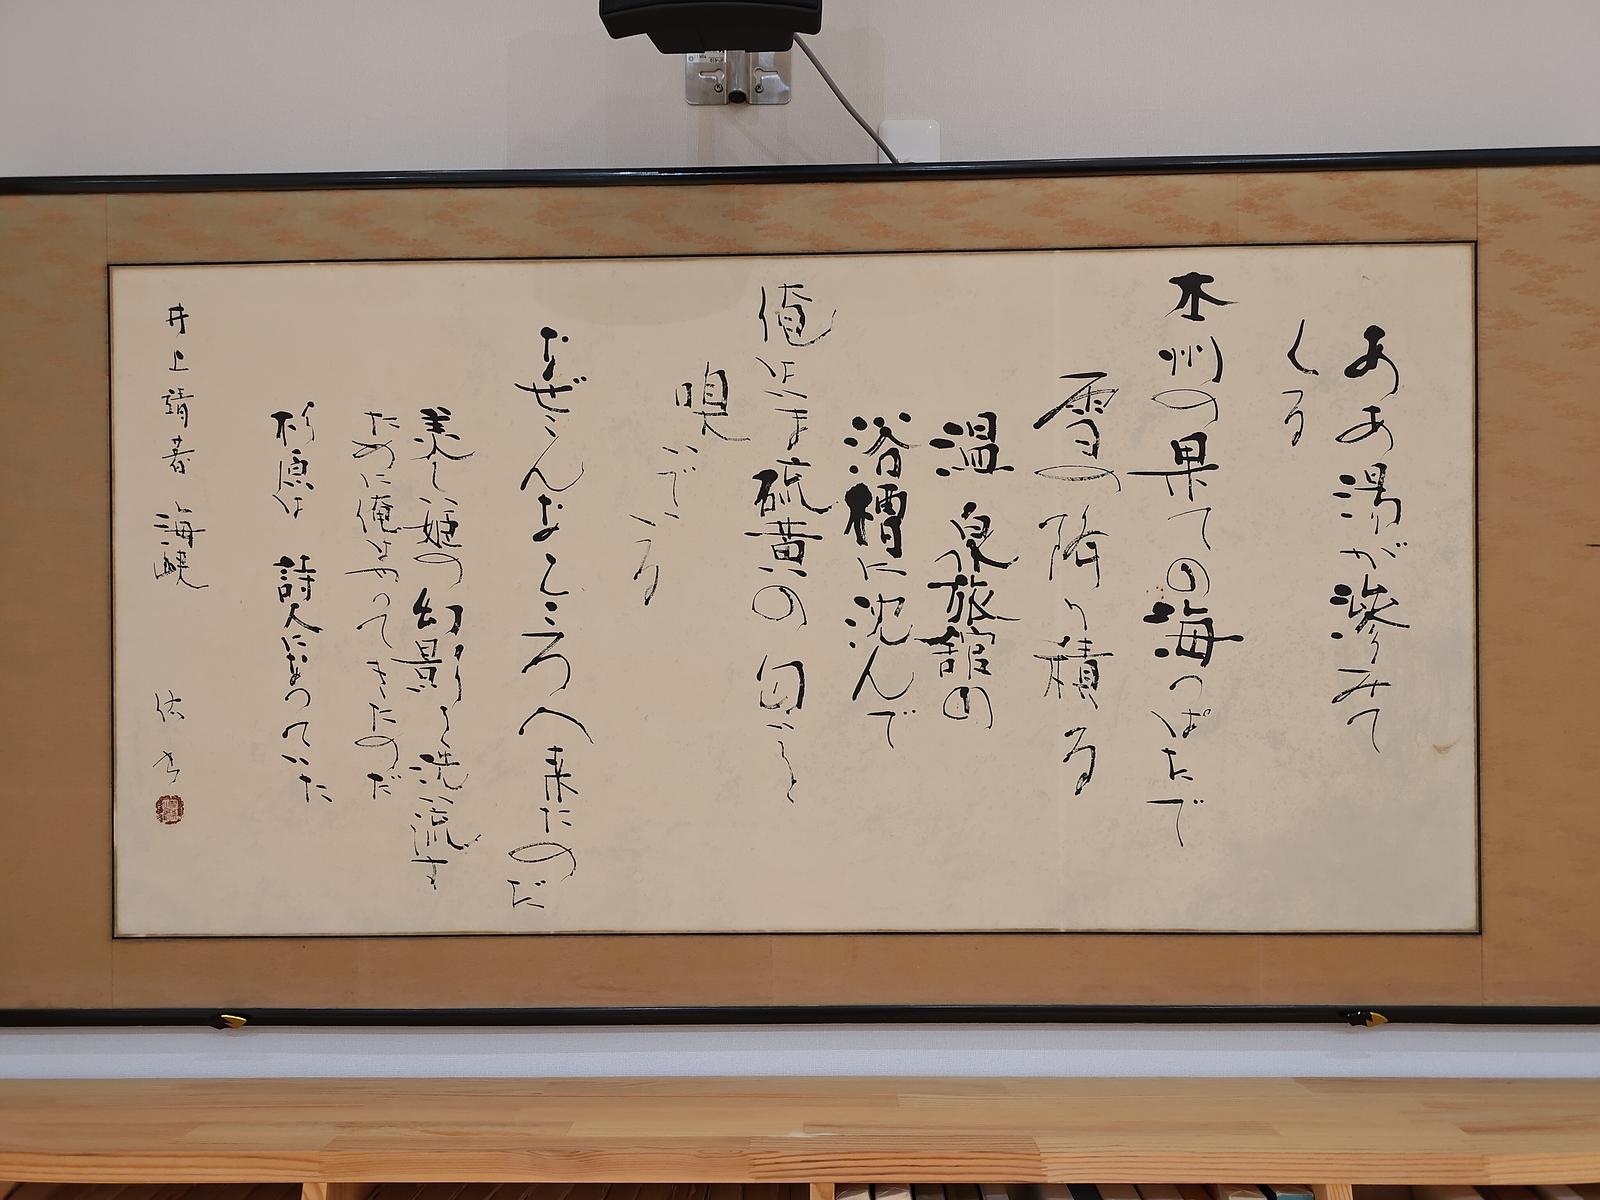 ああ湯が滲みて
くる
本州の果ての海っぱたで
雪の降り積る
温泉旅館の
浴槽に沈んで
俺はいま硫黄の匂いを
嗅
いでいる
なぜこんなところへ来たのだ
美しい姫の幻影を洗い流す
ために俺はやってきたのだ
杉原は 詩人になっていた
井上靖著 海峡